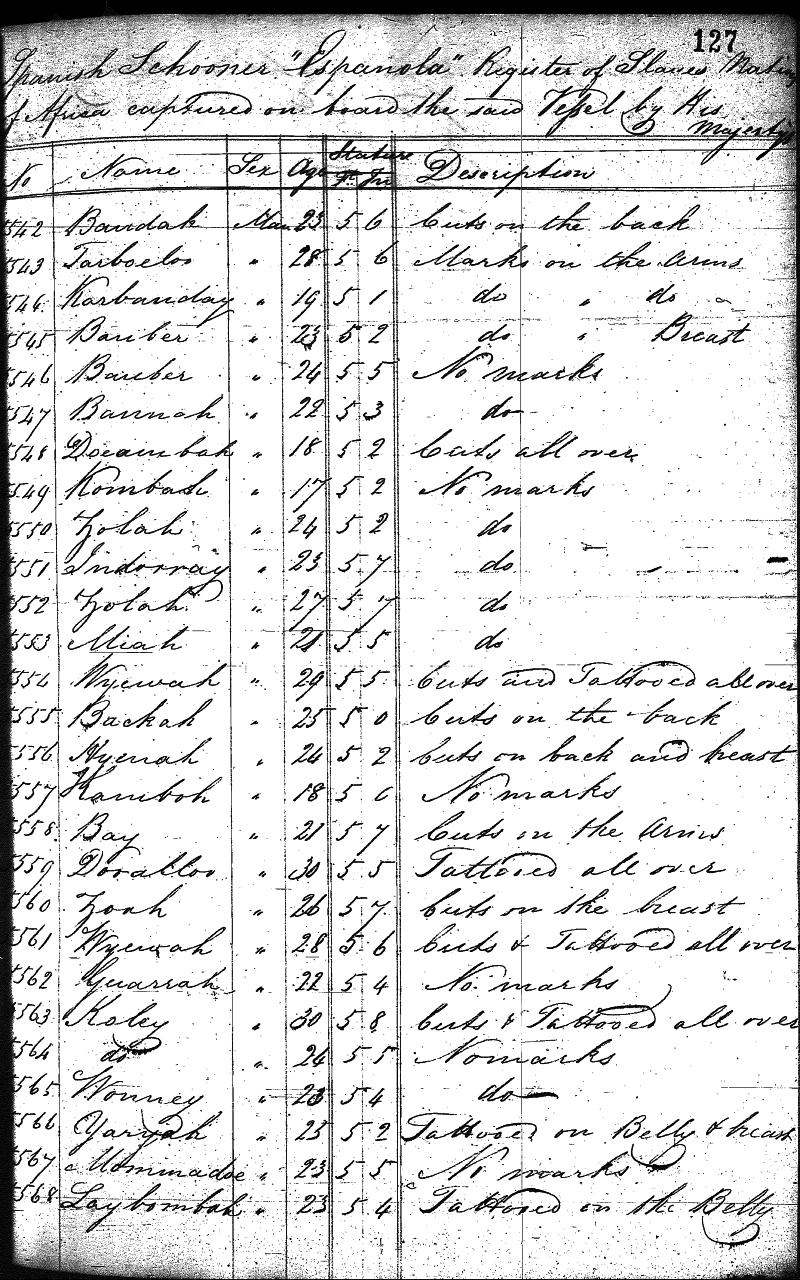 127
Spanish Schooner "Espanola" Register of Slaves Natives
of Africa captured on board the said Vessel by His
Majesty's
No Name Sex Age Stature Ft In Description
542 Bandah Man 23 5 6 Cuts on the back
543 Tarboeloo " 28 5 6 Marks on the Arms
544 Karbanday " 19 5 1 do " do "
5545 Bauber " 23 5 2 do " Breast
5546 Bauber " 24 5 5 No marks
5547 Bannah " 22 5 3 do
5548 Doeambah " 18 5 2 Cuts all over
5549 Kombah " 17 5 2 No marks
5550 Zolah " 24 5 2 do
5551 Indorray " 23 5 7 do "
5552 Zolah " 27 5 7 do
5553 Miah " 21 5 5 do
5554 Wyewah " 29 5 5 Cuts and Tattooed all over
5555 Backah " 25 5 0 Cuts on the back
5556 Hyenah " 24 5 2 Cuts on back and breast
5557 Kamboh " 18 5 0 No marks
5558 Bay " 21 5 7 Cuts on the Arms
5559 Doralloo " 30 5 5 Tattooed all over
5560 Zoah " 26 5 7 Cuts on the breast
5561 Wyewah " 28 5 6 Cuts & Tattooed all over
5562 Guarrah " 22 5 4 No marks
5563 Koley " 30 5 8 Cuts & Tattooed all over
5564 do " 24 5 5 No marks
5565 Wonney " 23 5 4 do
5566 Yaryah " 23 5 2 Tattooed on Belly & breast
5567 Mommadoe " 23 5 5 No marks
5568 Laybombah " 23 5 4 Tattooed on the Belly